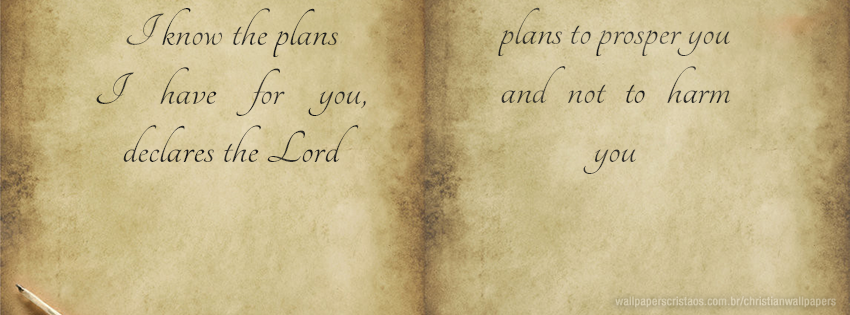 I know the plans
I have for you,
declares the Lord
plans to prosper you
and not to harm
you
wallpaperscristaos.com.br/christianwallpapers